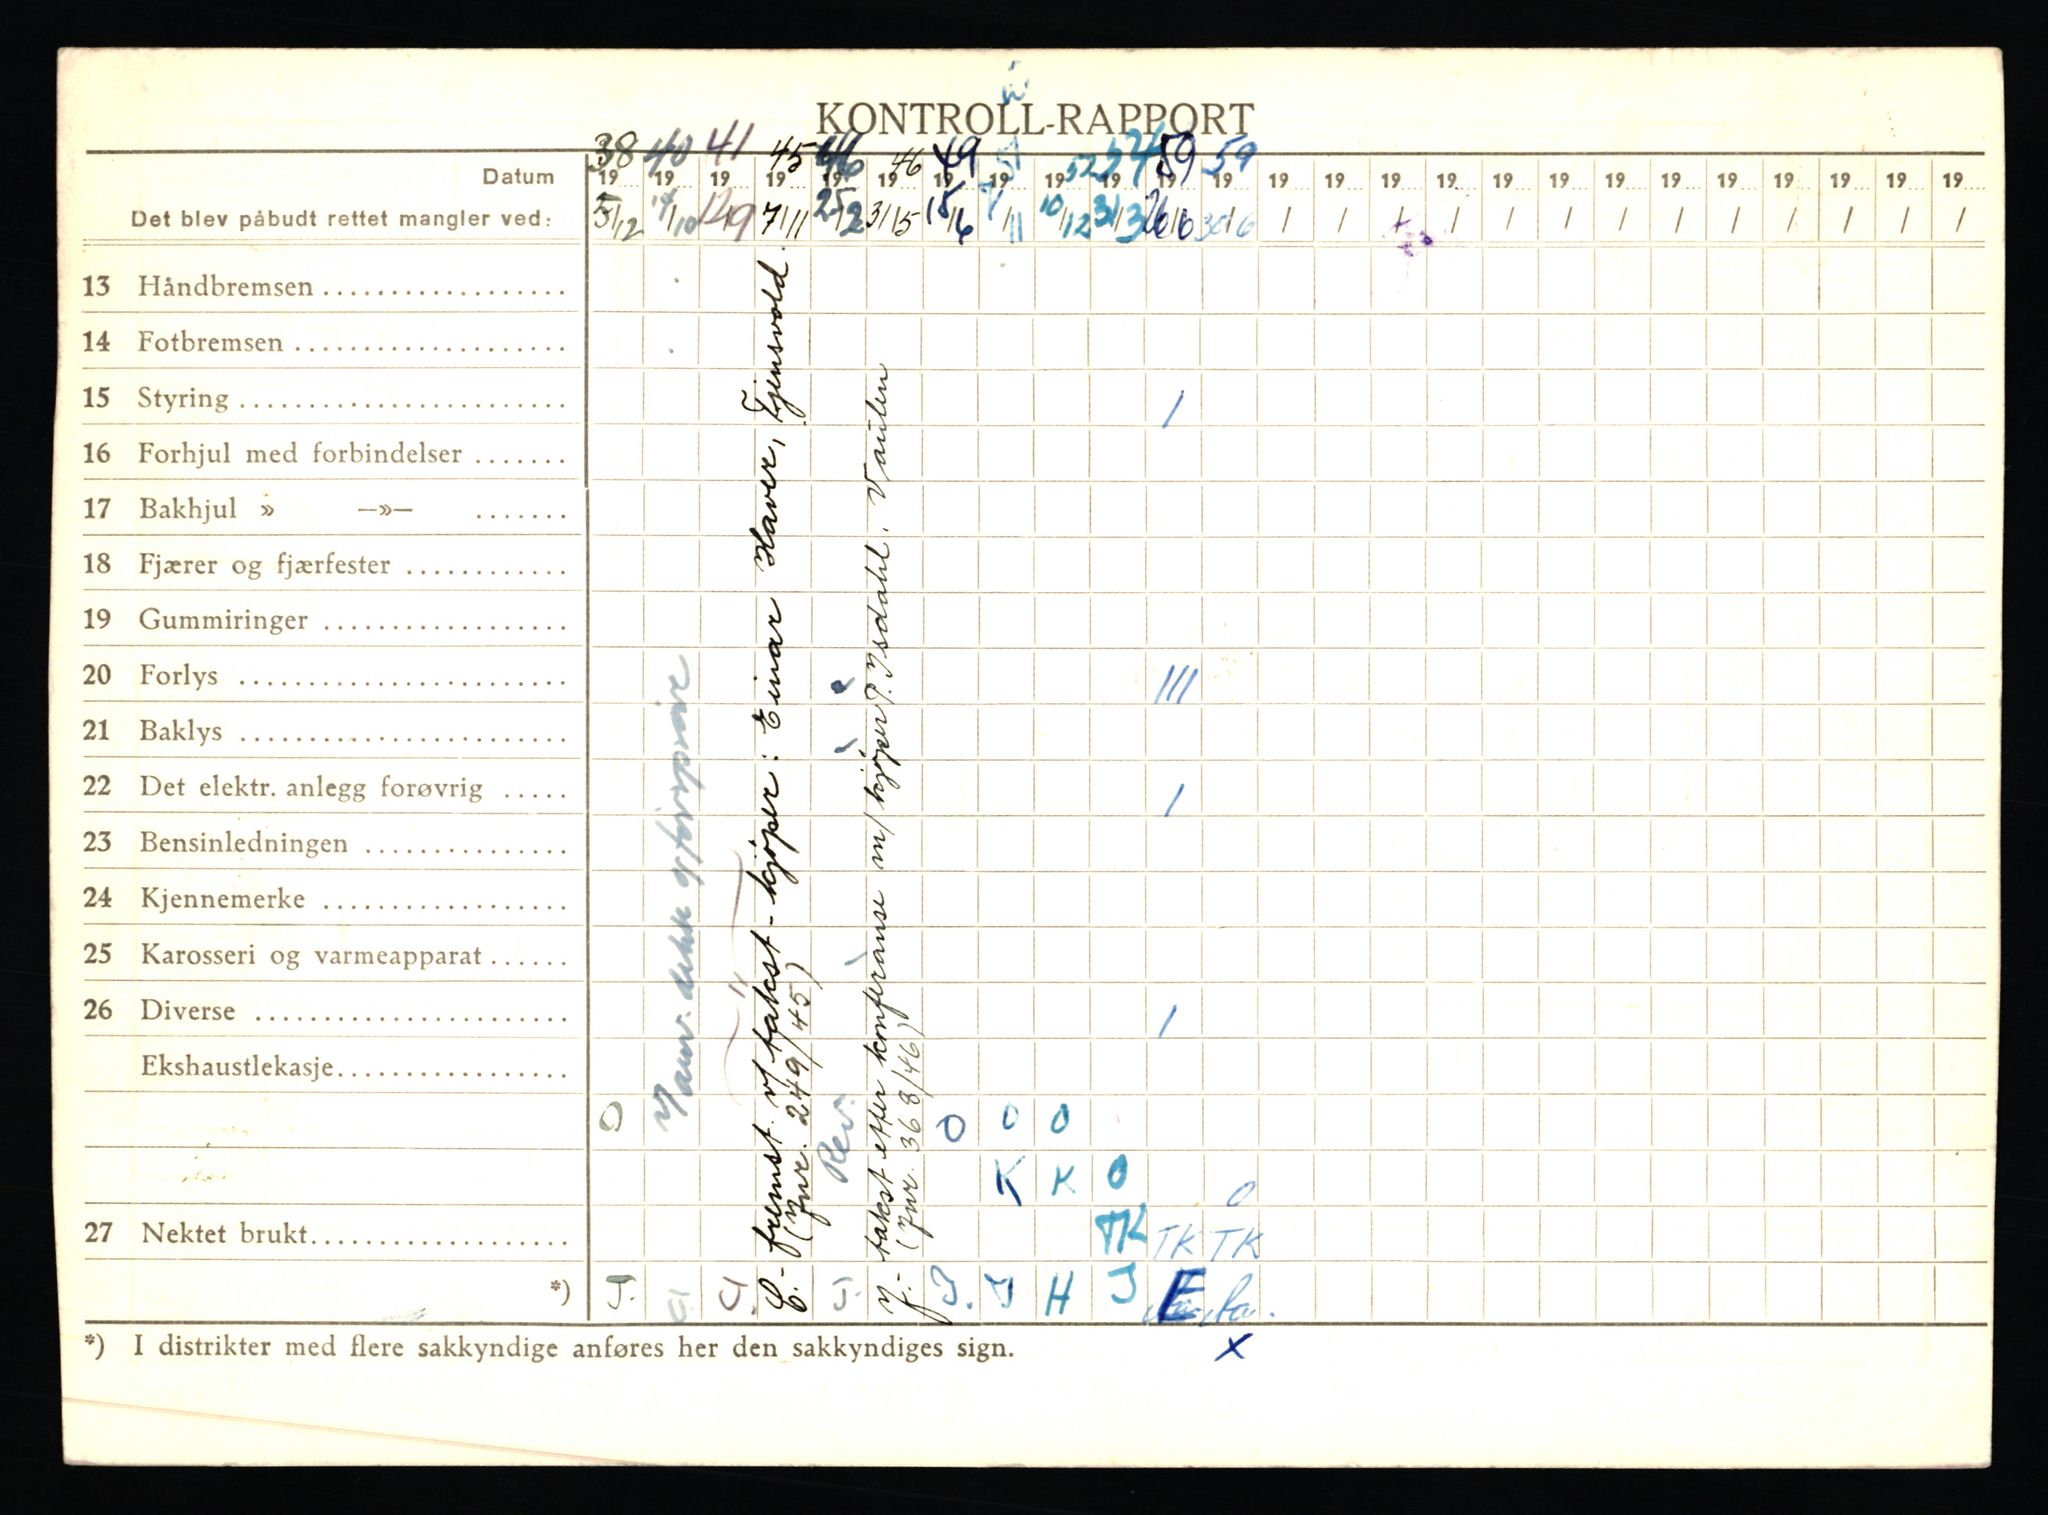 KONTROLL-RAPPORT
38 40 41 45 46 46 49 51 52 54 59 59
Datum 19 19 19 19 19 19 19 19 19 19 19 19 19 19 19 19 19 19 19 19 19 19 19 19 19
Det blev påbudt rettet mangler ved: 5/12 14/10 12/9 7/11 25/2 31/5 15/6 7/11 10/12 31/3 26/6 30/6 / / / / / / / / / / / / /
13 Håndbremsen
14 Fotbremsen
15 Styring /
16 Forhjul med forbindelser
17 Bakhjul » —»—
18 Fjærer og fjærfester
19 Gummiringer
20 Forlys ///
21 Baklys
22 Det elektr. anlegg forøvrig /
23 Bensinledningen
24 Kjennemerke
25 Karosseri og varmeapparat
26 Diverse /
Ekshaustlekasje
O O O O
K K O O
27 Nektet brukt TK TK TK
*) J. J. J. J. J H J E
*) I distrikter med flere sakkyndige anføres her den sakkyndiges sign. x
E.- fremst. v/ takst - kjøper: Einar Haver, Tjensvold.
(Jnr. 249/45)
Rev.
J.- takst efter konferanse m/ kjøper P. Isdahl. Vaulen
(Jnr. 368/46)